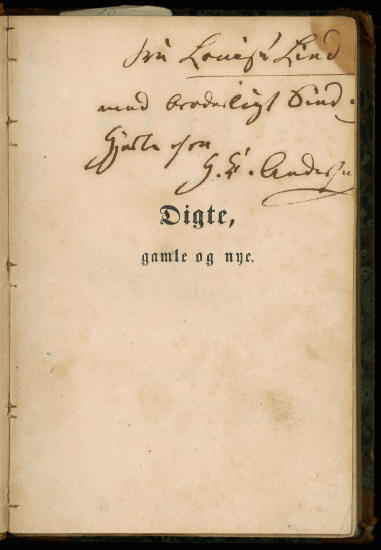 Fru Louise Lind
med broderligt Sind
Hjerte
H. C. Andersen
Digte,
gamle og nye.